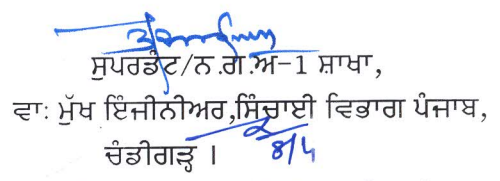 ਸੁਪਰਡੰਟ/ਨ.ਗ.ਅ-1 ਸ਼ਾਖਾ,
ਵਾ: ਮੁੱਖ ਇੰਜੀਨੀਅਰ,ਸਿੰਚਾਈ ਵਿਭਾਗ ਪੰਜਾਬ,
ਚੰਡੀਗੜ੍ਹ ।
8/4